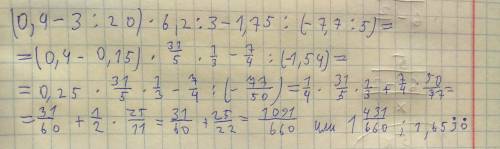 (0,4 - 3 : 20) · 6,2 : 3 - 1,75 : (-7,7 : 5) =
= (0,4 - 0,15) · 31/5 · 1/3 - 7/4 : (-1,54) =
= 0,25 · 31/5 · 1/3 - 7/4 : (- 77/50) = 1/4 · 31/5 · 1/3 + 7/4 · 50/77 =
= 31/60 + 1/2 · 25/11 = 31/60 + 25/22 = 1091/660 или 1 431/660 ; 1,6530